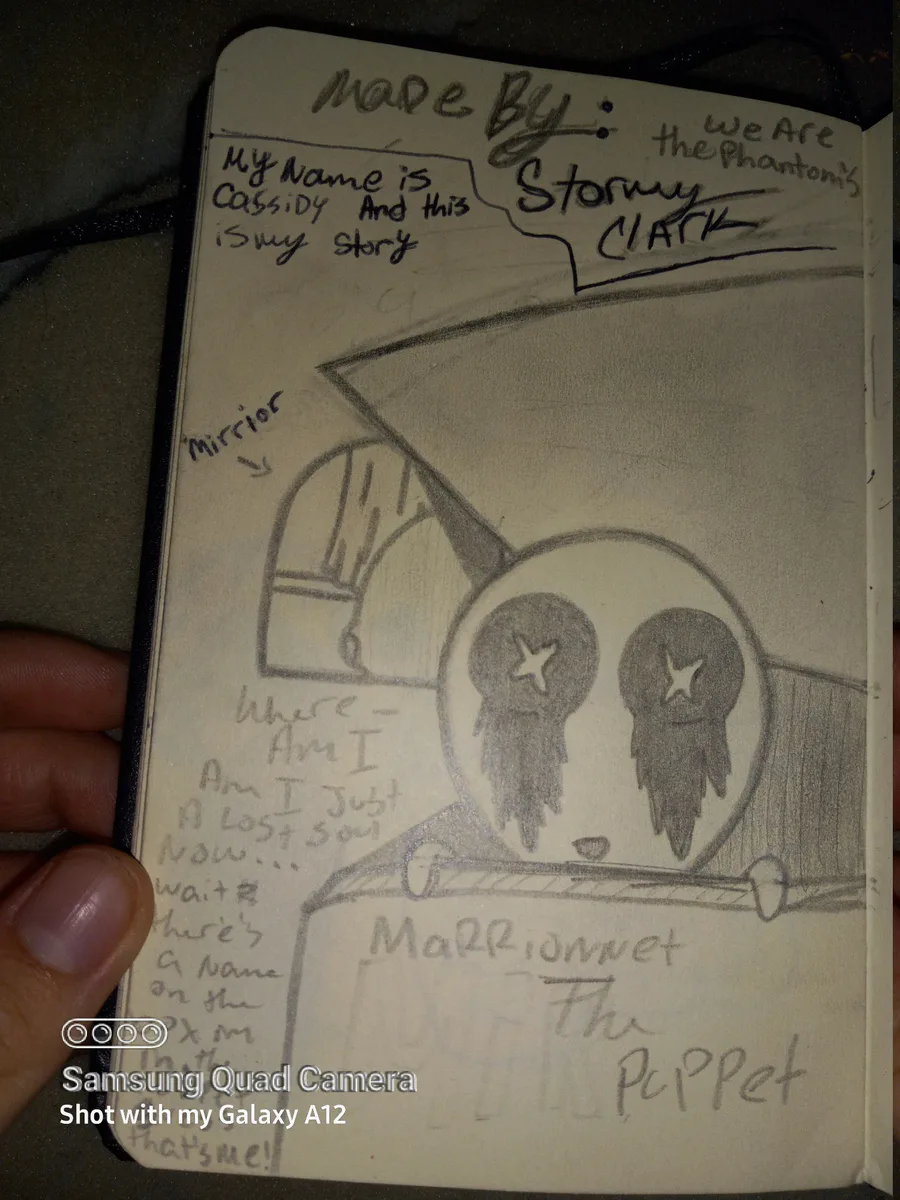 MaDe By:
We Are
the Phantom's
My Name is
CaSSiDY And this
is my Story
Stormy
Clark
Mirrior
Where -
Am I
Am I Just
A Lost Soul
Now...
wait
there's
a Name
on the
Box im
In the
that's me!
MaRRionnet
The
PuPPet
Samsung Quad Camera
Shot with my Galaxy A12